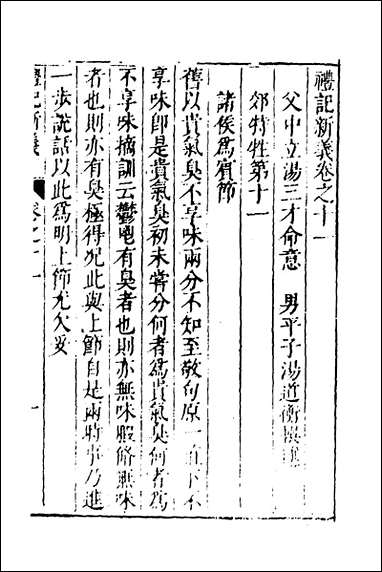 禮記新義卷之十一
父中立湯三才命意 男平子湯道衡
郊特牲第十一
諸侯爲賓節
舊以貴氣臭不享味兩分不知至敬句原一直下不
享味即是貴氣臭初未嘗分何者爲貴氣臭何者爲
不享味摘訓云鬱鬯有臭者也則亦無味腶脩無味
者也則亦有臭極得況此與上節自是兩時事乃進
一步說話以此爲明上節尤欠妥
禮記新義 卷之十一 一